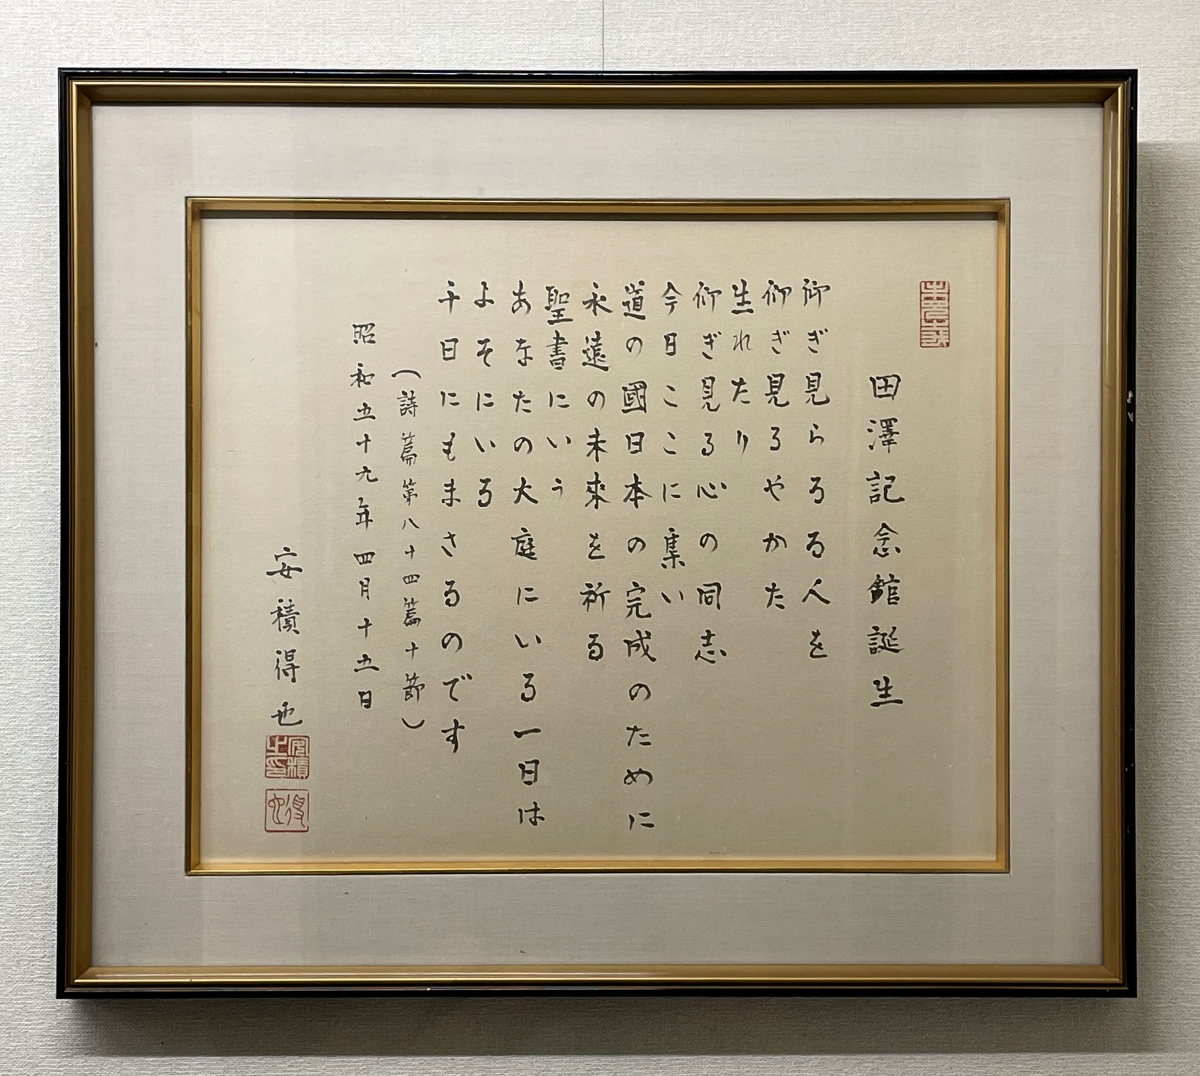 田澤記念館誕生
仰ぎ見らるる人を
仰ぎ見るやかた
生れたり
仰ぎ見る心の同志
今日ここに集い
道の國日本の完成のために
永遠の未來を祈る
聖書にいう
あなたの大庭にいる一日は
よそにいる
千日にもまさるのです
(詩篇第八十四篇十節)
昭和五十九年四月十五日
安積得也
安積之印
得也